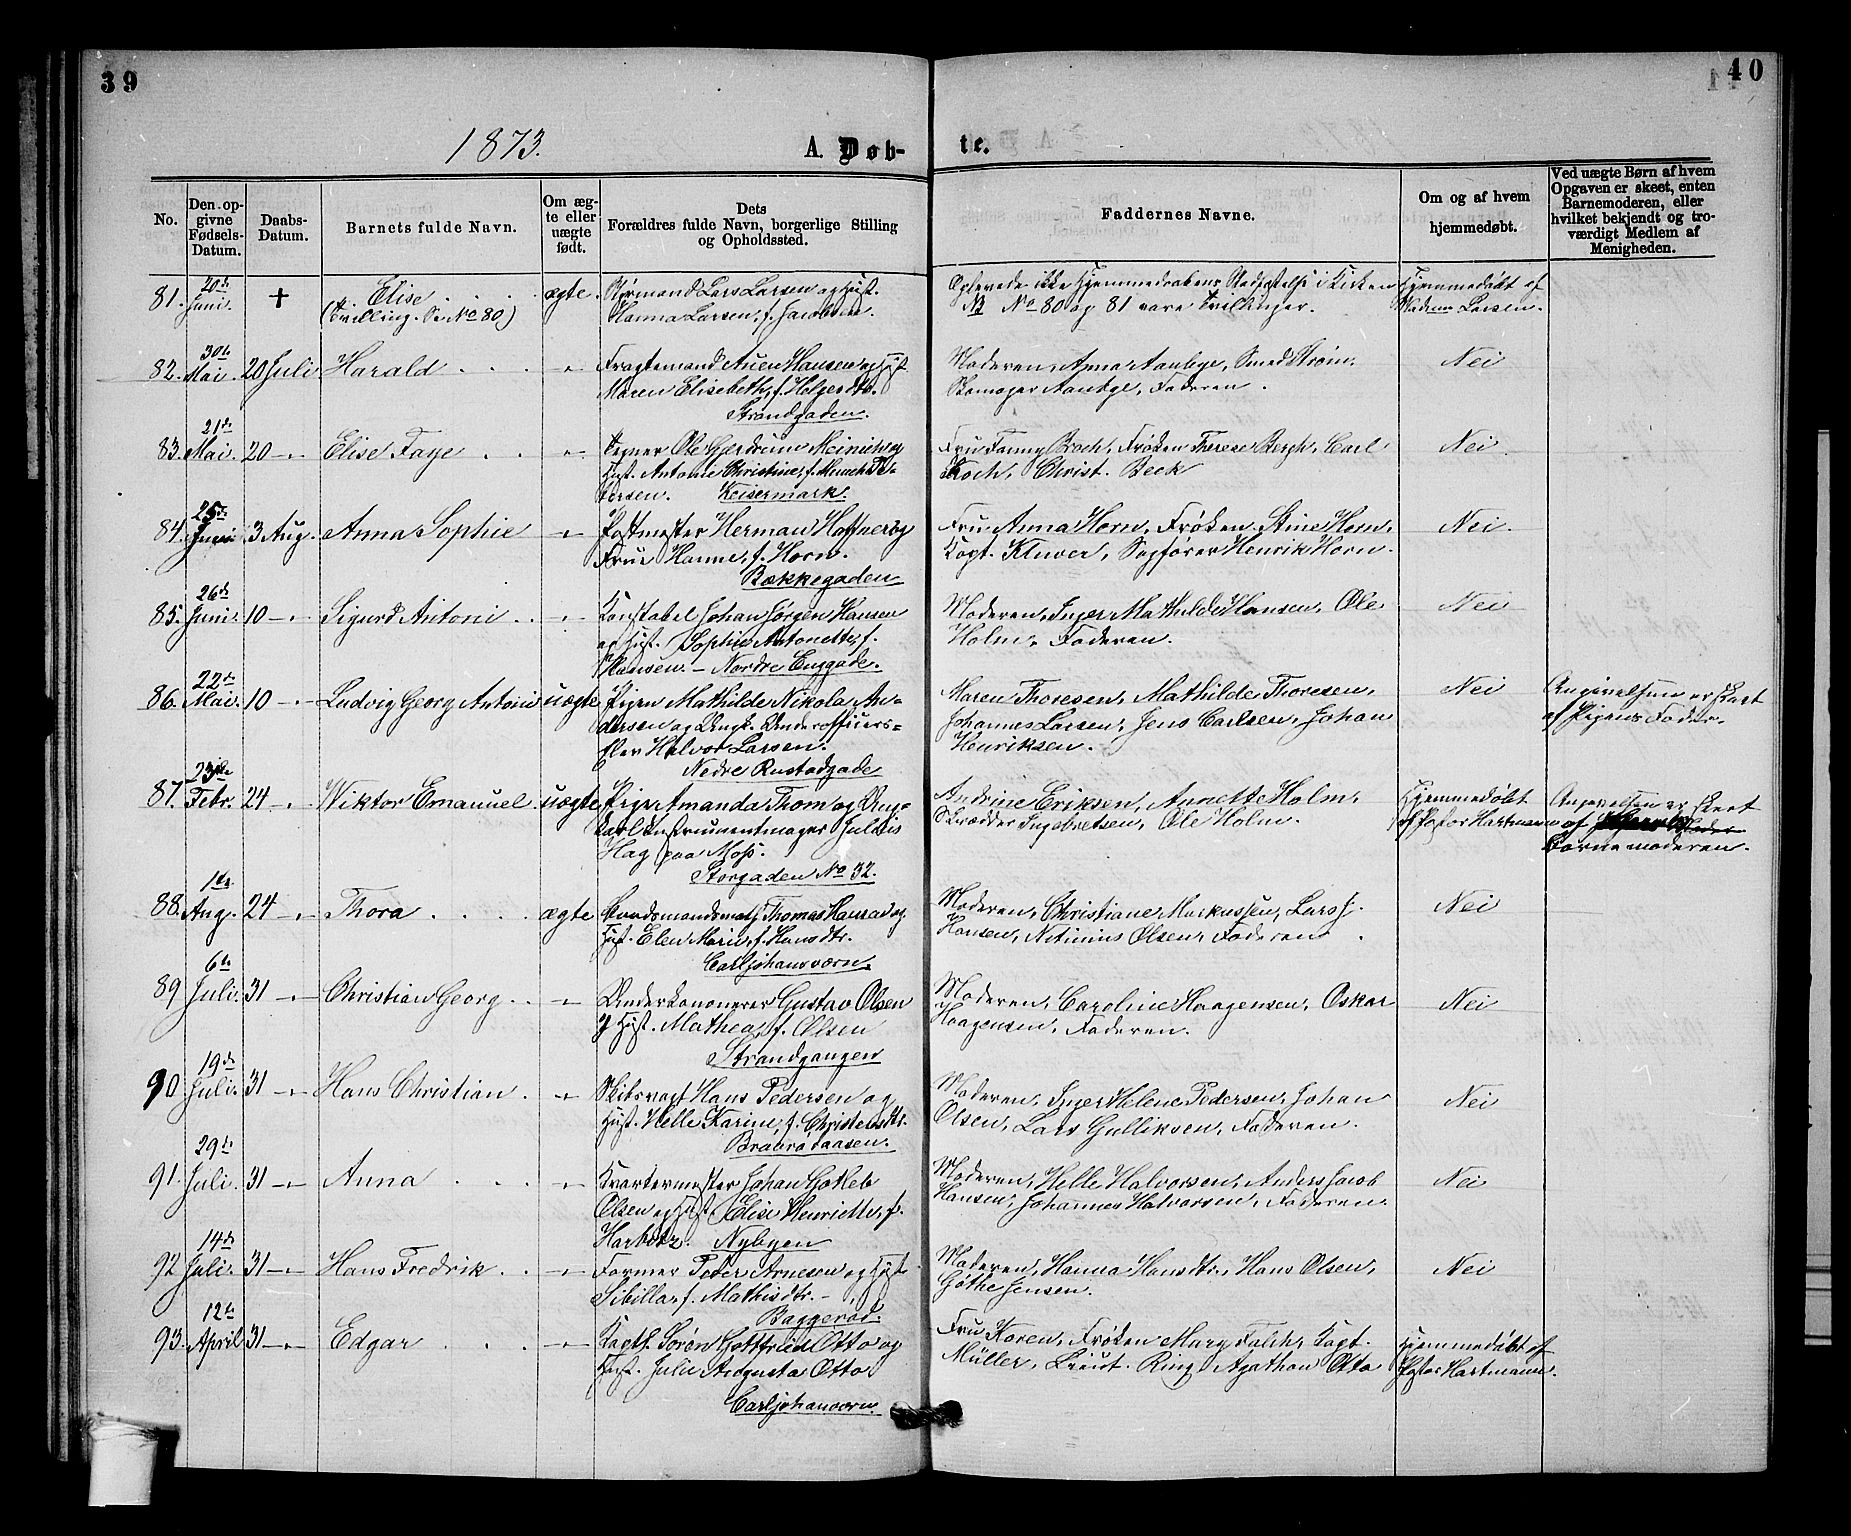 39
40
1873.
A. Døb-
te.
No.
Den opgivne Fødsels-Datum.
Daabs-Datum.
Barnets fulde Navn.
Om ægte eller uægte født.
Dets Forældres fulde Navn, borgerlige Stilling og Opholdssted.
Faddernes Navne.
Om og af hvem hjemmedøbt.
Ved uægte Børn af hvem Opgaven er skeet, enten Barnemoderen, eller hvilket bekjendt og troværdigt Medlem af Menigheden.
81. 20de Juni. † Elise ægte
(Tvilling. Se No 80)
Styrmand Lars Larsen og Hust.
Hanna Larsen, f. Jacobsen.
Oplevede ikke Hjemmedaabens Stadfæstelse i Kirken
NB No 80 og 81 vare Tvillinger.
Hjemmedøbt af
Madam Larsen.
82. 30te Mai. 20 Juli Harald
Fragtemand Auen Hansen og Hust.
Maren Elisabeth, f. Holgersdtr.
Strandgaden.
Moderen, Anna Aanbye, Smed Strøm,
Skomager Aanbye, Faderen.
Nei
83. 21de Mai. 20 Elise Faye
Tegner Ole Gjerdrum Meinich og
Hust. Antonie Christine, f. Munch Pe-
tersen. Keisermark.
Fru Fanny Boch, Frøken Therese Bergh, Carl
Koch, Christ. Beck
Nei
84. 25de Juni 3 Aug. Anna Sophie
Postmester Herman Haffner og
Frue Hanne, f. Horn.
Bækkegaden
Fru Anna Horn, Frøken Stine Horn,
Capt. Kluver, Sagfører Henrik Horn.
Nei
85. 26de Juni. 10 Sigurd Antoni
Konstabel Johan Jørgen Hansen
og Hust. Sophie Antonette, f.
Hansen. - Nordre Enggade.
Moderen, Inger Mathilde Hansen, Ole
Holm, Faderen.
Nei
86. 22de Mai. 10 Ludvig Georg Antoni uægte
Pigen Mathilde Nikola An-
dersen og Ungk. Underofficers-
elev Halvor Larsen.
Nedre Rustadgade
Maren Thoresen, Mathilde Thoresen,
Johannes Larsen, Jens Carlsen, Johan
Henriksen.
Nei
Angivelsen er skeet
af Pigens Fader.
87. 23de Febr. 24 Wiktor Emanuel uægte
Pige Amanda Thom og Ung-
karl Instrumentmager Julius
Hag paa Moss.
Storgaden No 32.
Andrine Eriksen, Annette Holm,
Skrædder Ingebretsen, Ole Holm.
Hjemmedøbt
af Pastor Hartmann
Angivelsen er skeet
af
Barnemoderen.
88. 1ste Aug. 24 Thora ægte
Baadsmandsmath Thomas Hansen og
Hust. Elen Marie, f. Hansdtr.
Carljohansværn.
Moderen, Christiane Markussen, Lars J.
Hansen, Nitinius Olsen, Faderen.
Nei
89 6te Juli. 31 Christian Georg
Underkanonerer Gustav Olsen
og Hust. Mathea, f. Olsen
Strandgangen
Moderen, Caroline Haagensen, Oskar
Haagensen, Faderen.
Nei
90 19de Juli. 31 Hans Christian
Skibsvagt Hans Pedersen og
Hust. Helle Karine, f. Christensdtr.
Braarødaasen.
Moderen, Inger Helene Pedersen, Johan
Olsen, Lars Gulliksen, Faderen.
Nei
91. 29de Juli. 31 Anna
Kvartermester Johan Gotlieb
Olsen og Hust. Elise Henriette, f.
Harbitz. Nybyen
Moderen, Helle Halvorsen, Anders Jacob
Hansen, Johannes Halvorsen, Faderen.
Nei
92 14de Juli. 31 Hans Fredrik
Former Peder Arnesen og Hust
Sibilla, f. Mathisdtr. -
Baggerød.
Moderen, Hanna Hansdtr, Hans Olsen,
Gøthe Jensen.
Nei
93. 12te April 31 Edgar
Capth. Søren Gottfried Otto og
Hust. Julie Augusta Otto
Carljohansværn.
Fru Koren, Frøken Mary Falch, Capt.
Müller, Lieut. Ring, Agathon Otto
Hjemmedøbt af
Pastor Hartmann.